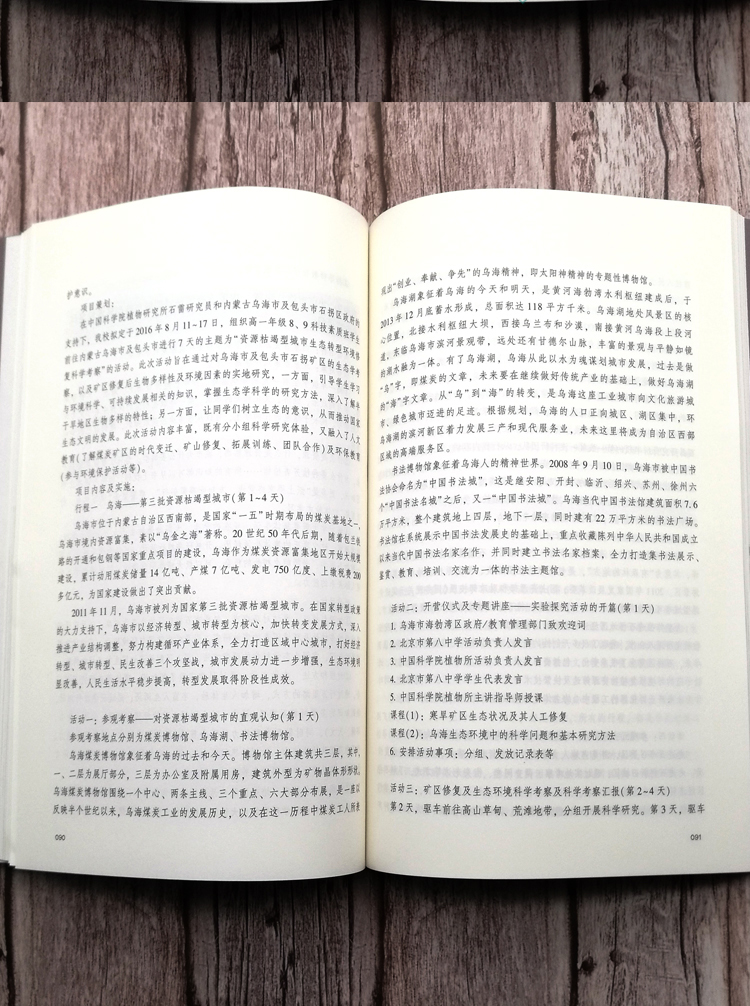 护意识。
项目策划：
在中国科学院植物研究所石雷研究员和内蒙古乌海市及包头市石拐区政府的
支持下，我校拟定于2016年8月11~17日，组织高一年级8、9科技素质班学生
前往内蒙古乌海市及包头市进行7天的主题为“资源枯竭型城市生态转型环境修
复科学考察”的活动。此次活动旨在通过对乌海市及包头市石拐矿区的生态学考
察，以及矿区修复后生物多样性及环境因素的实地研究，一方面，引导学生学习
与环境科学、可持续发展相关的知识，掌握生态学科学的研究方法，深入了解半
干旱地区生物多样的特性；另一方面，让同学们树立生态的意识，从而推动国家
生态文明的发展。此次活动内容丰富，既有分小组科学研究体验，又融入了人文
教育（了解煤炭矿区的时代变迁、矿山修复、拓展训练、团队合作）及环保教育
（参与环境保护活动等）。
项目内容及实施：
行程一 乌海——第三批资源枯竭型城市（第1~4天）
乌海市位于内蒙古自治区西南部，是国家“一五”时期布局的煤炭基地之一，
乌海市境内资源富集，素以“乌金之海”著称。20世纪50年代后期，随着包兰铁
路的开通和包钢等国家重点项目的建设，乌海作为煤炭资源富集地区开始大规模
建设，累计动用煤炭储量14亿吨、产煤7亿吨、发电750亿度、上缴税费200
多亿元，为国家建设做出了突出贡献。
2011年11月，乌海市被列为国家第三批资源枯竭型城市。在国家转型政策
的大力支持下，乌海市以经济转型、城市转型为核心，加快转变发展方式，深入
推进产业结构调整，努力构建循环产业体系，全力打造区域中心城市，打好经济
转型、城市转型、民生改善三个攻坚战，城市发展动力进一步增强，生态环境明
显改善，人民生活水平稳步提高，转型发展取得阶段性成效。
活动一：参观考察——对资源枯竭型城市的直观认知（第1天）
参观考察地点分别为煤炭博物馆、乌海湖、书法博物馆。
乌海煤炭博物馆象征着乌海的过去和今天。博物馆主体建筑共三层，其中，
一、二层为展厅部分，三层为办公室及附属用房，建筑外型为矿物晶体形形状。
乌海煤炭博物馆围绕一个中心、两条主线、三个重点、六大部分布展，是一座以
反映半个世纪以来，乌海煤炭工业的发展历史，以及在这一历程中煤炭工人所表
090
现出“创业、奉献、争先”的乌海精神，即太阳神精神的专题性博物馆。
乌海湖象征着乌海的今天和明天，是黄河海勃湾水利枢纽建成后，于
2013年12月底蓄水形成，总面积达118平方千米。乌海湖地处风景区的核
心位置，北接水利枢纽大坝，西接乌兰布和沙漠，南接黄河乌海段上段河
道，东临乌海市滨河景观带，远处还有甘德尔山脉，丰富的景观与平静如镜
的湖水融为一体。有了乌海湖，乌海从此以水为魂谋划城市发展，过去是做
“乌”字，即煤炭的文章，未来要在继续做好传统产业的基础上，做好乌海湖
的“海”字文章。从“乌”到“海”的转变，是乌海这座工业城市向文化旅游城
市、绿色城市迈进的足迹。根据规划，乌海的人口正向城区、湖区集中，环
乌海湖的滨河新区着力发展三产和现代服务业，未来这里将成为自治区西部
区域的高端服务区。
书法博物馆象征着乌海人的精神世界。2008年9月10日，乌海市被中国书
法协会命名为“中国书法城”，这是继安阳、开封、临沂、绍兴、苏州、徐州六
个“中国书法名城”之后，又一“中国书法城”。乌海当代中国书法馆建筑面积7.6
万平方米，整个建筑地上四层，地下一层，同时建有22万平方米的书法广场。
书法馆在系统展示中国书法发展史的基础上，重点收藏陈列中华人民共和国成立
以来当代中国书法名家名作，并同时建立书法名家档案，全力打造集书法展示、
鉴赏、教育、培训、交流为一体的书法主题馆。
活动二：开营仪式及专题讲座——实验探究活动的开篇（第1天）
1. 乌海市海勃湾区政府/教育管理部门致欢迎词
2. 北京市第八中学活动负责人发言
3. 中国科学院植物所活动负责人发言
4. 北京市第八中学学生代表发言
5. 中国科学院植物所主讲指导师授课
课程（1）：寒旱矿区生态状况及其人工修复
课程（2）：乌海生态环境中的科学问题和基本研究方法
6. 安排活动事项：分组、发放记录表等
活动三：矿区修复及生态环境科学考察及科学考察汇报（第2~4天）
第2天，驱车前往高山草甸、荒滩地带，分组开展科学研究。第3天，驱车
091